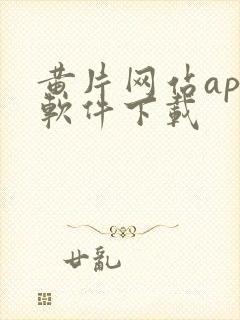 黄片网佔ap
軟件下載
廿亂